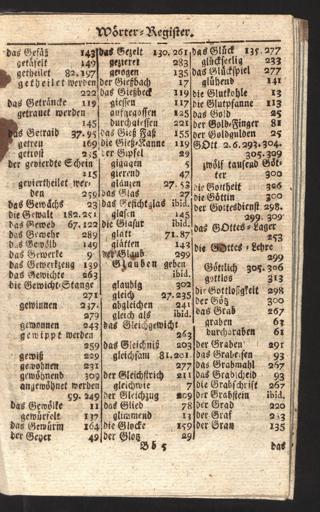 Wörter-Register.
das Gefäß 143
getäfelt 149
getheilet 82. 197
getheilet werden
222
das Geträncke 119
getrauet werden
145
das Getraid 37. 95
getreu 169
getrost
der gevierdte Schein
115
geviertheilet wer-
den 259
das Gewächs 23
die Gewalt 182. 251
das Geweb 67. 122
das Gewehr 289
das Gewölb 149
das Gewerke 9
das Gewerkzeug 139
das Gewichte 263
die Gewicht-Stange
271
gewinnen 237.
279
gewonnen 243
gewippet werden
259
gewiß 229
gewohnen 231
gewöhnend 309
ungewöhnet werden
59. 249
das Gewölke 11
gewürfelt 137
das Gewürm 164
der Geyer 49
das Gezelt 130. 261
gezieret 283
gezogen 135
der Gießbach 17
das Gießbeck 119
giessen 117
außgegossen 125
durchgiessen 221
das Gieß Faß 155
die Gieß-Kanne 119
der Gipfel 29
gängen 5
gierend 47
glänzen 27. 53
das Glas 27
das Gesichtglas ibid.
glasen 145
die Glasur ibid.
glatt 71. 87
glätten 143
der Glaub 299
Glauben geben
ibid.
glaubig 302
gleich 27. 235
abgleichen 241
gleich als ibid.
das Gleichgewicht
263
das Gleichniß 209
gleichsam 81. 201.
277
der Gleichstrich 211
gleichwie 7
der Gleichzug 209
das Glied 78
glimmend 13
die Glocke 159
der Glotz 29
das Glück 135. 277
glückseelig 233
das Glückspiel 277
glühend 141
die Glutkohle 13
die Glutpfanne 113
das Gold 25
der Gold-Finger 81
der Goldgulden 25
GOtt 2. 6. 293. 304.
305. 309
zwölf tausend Göt-
ter 300
die Gottheit 306
die Göttin 300
der Gottesdienst 298.
299. 309
das GOttes-Lager
253
die GOttes-Lehre
299
Göttlich 305. 306
gottlos 313
die Gottlosigkeit 298
der Götz 300
das Grab 267
graben 61
durchgraben 61
der Graben 291
das Grabeisen 93
das Grabmahl 267
das Grabscheid 93
die Grabschrift 267
der Grabstein ibid.
der Grad 220
der Graf
der Gran 135
Bb 5
das